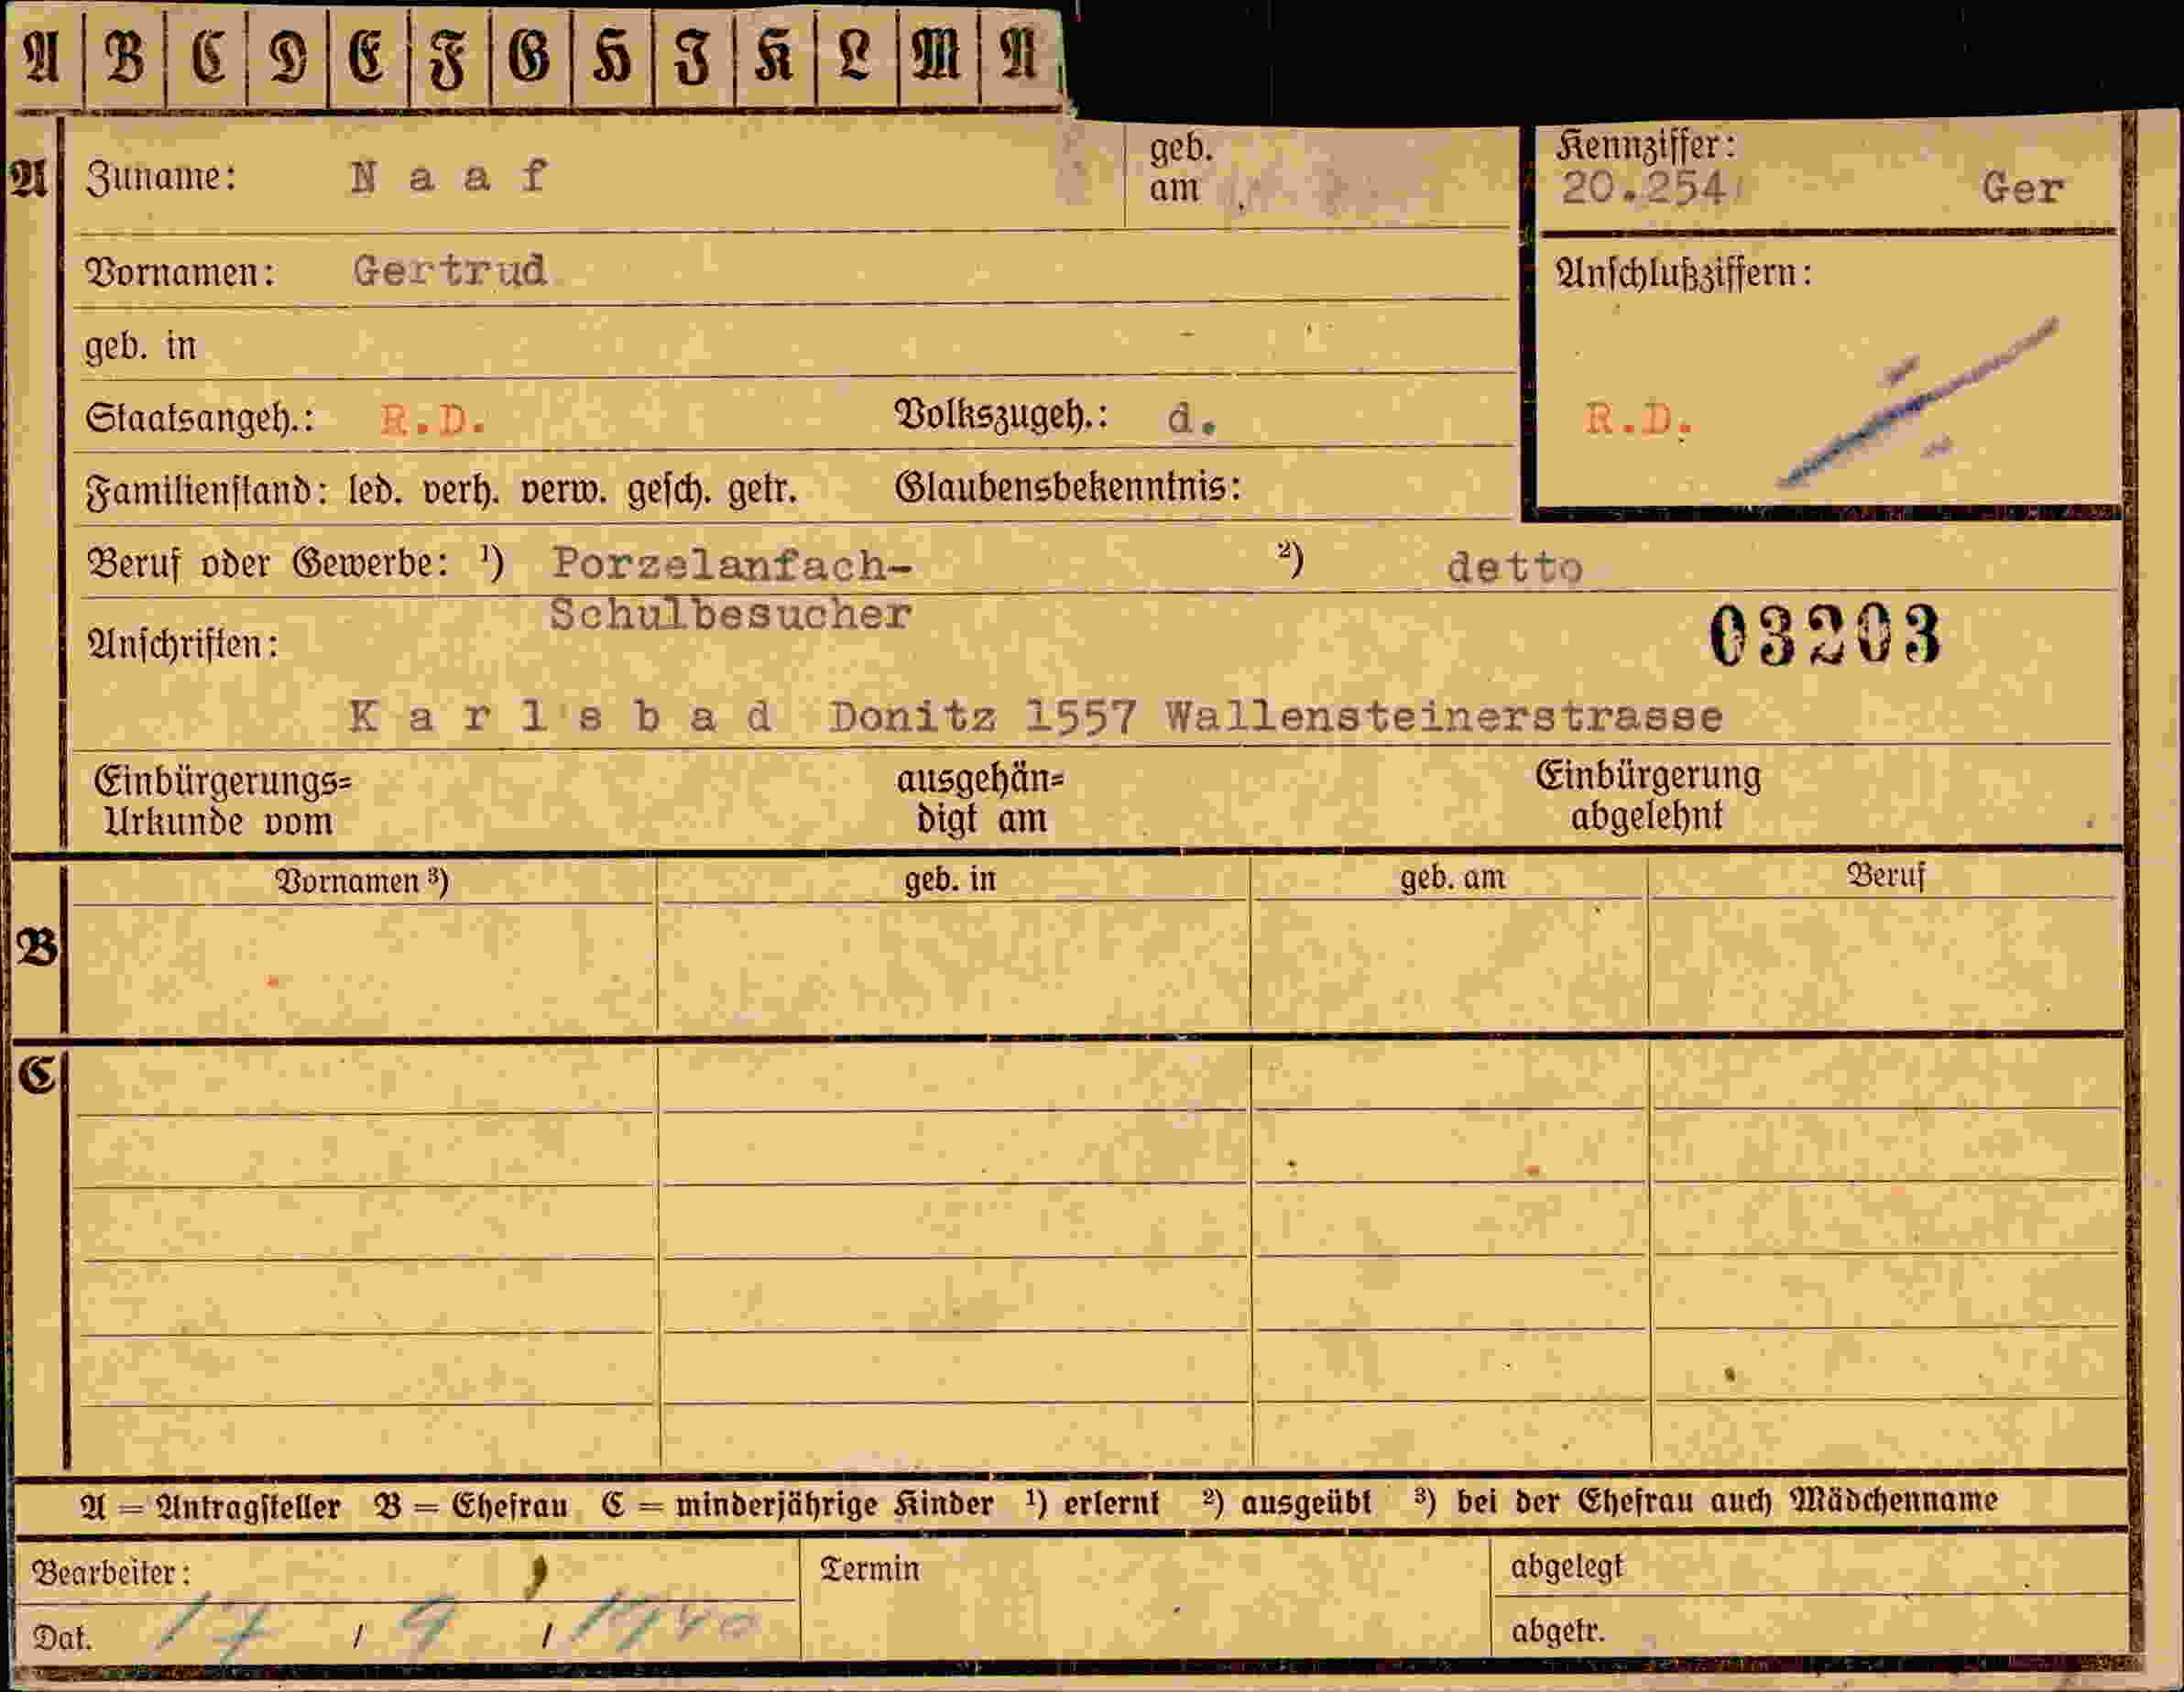 A B C D E F G H I K L M N
A
Zuname: Naaf
geb. am
Kennziffer:
20.254 Ger
Vornamen: Gertrud
Anschlußziffern:
geb. in
Staatsangeh.: R.D. Volkszugeh.: d.
R.D.
Familienstand: led. verh. verw. gesch. getr. Glaubensbekenntnis:
Beruf oder Gewerbe: ¹) Porzelanfach- ²) detto
Schulbesucher
03203
Anschriften:
Karlsbad Donitz 1557 Wallensteinerstrasse
Einbürgerungs= ausgehän= Einbürgerung
Urkunde vom digt am abgelehnt
Vornamen ³) geb. in geb. am Beruf
B
C
A = Antragsteller B = Ehefrau C = minderjährige Kinder ¹) erlernt ²) ausgeübt ³) bei der Ehefrau auch Mädchenname
Bearbeiter: Termin abgelegt
Dat. 17 / 9 / 1940 abgetr.